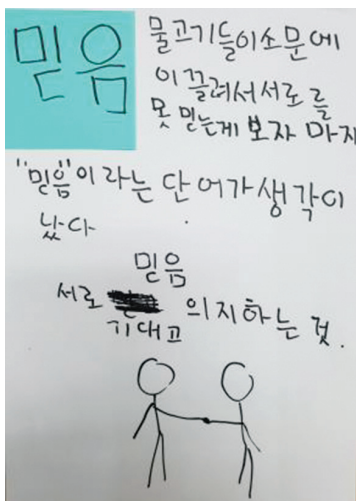 믿음
물고기들이소문에
이끌려서서로를
못 믿는게 보자 마자
"믿음"이라는 단어가생각이
났다
믿음
서로 기대고 의지하는 것.